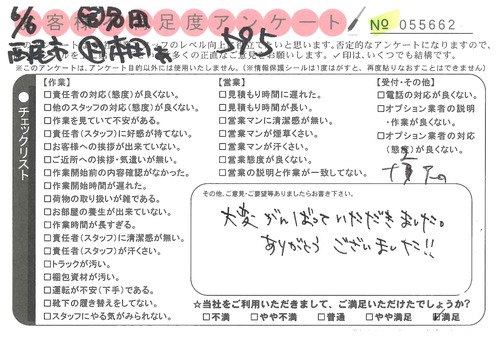 6/6
お客様満足度アンケート
No 055662
西尾市
595
※このアンケートは、アンケート目的以外には使用いたしません。(※情報保護シールは1度がすと、再度貼りなおすことはできません)
チェックリスト
【作業】
□責任者の対応(態度)が良くない。
□他のスタッフの対応(態度)が良くない。
□作業を見ていて不安がある。
□責任者(スタッフ)に好感が持てない。
□お客様への挨拶が出来ていない。
□ご近所への挨拶・気遣いが無い。
□作業開始前の内容確認がなかった。
□作業開始時間が遅れた。
□荷物の取り扱いが雑である。
□お部屋の養生が出来ていない。
□作業時間が長すぎる。
□責任者(スタッフ)に清潔感が無い。
□責任者(スタッフ)が汗くさい。
□トラックが汚い。
□梱包資材が汚い。
□運転が不安(下手)である。
□靴下の履き替えをしてない。
□スタッフにやる気がみられない。
【営業】
□見積もり時間に遅れた。
□見積もり時間が長い。
□営業マンに清潔感が無い。
□営業マンが煙草くさい。
□営業マンが汗くさい。
□営業態度が良くない。
□営業の説明と作業が一致してない。
【受付・その他】
□電話の対応が良くない。
□オプション業者の説明
・作業が良くない。
□オプション業者の対応
(態度)が良くない。
その他、ご意見・ご要望等ありましたらお書き下さい。
大変がんばっていただきました。
ありがとうございました!!
☆当社をご利用いただきまして、ご満足いただけたでしょうか?
□不満 □やや不満 □普通 □やや満足 ☑満足